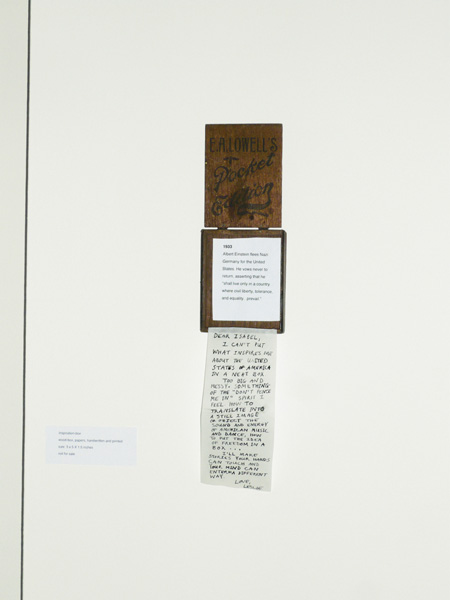 E.A. LOWELL'S
Pocket
Edition
1933
Albert Einstein flees Nazi
Germany for the United
States. He vows never to
return, asserting that he
"shall live only in a country
where civil liberty, tolerance,
and equality... prevail."
DEAR ISABEL,
I CAN'T PUT
WHAT INSPIRES ME
ABOUT THE UNITED
STATES OF AMERICA
IN A NEAT BOX
TOO BIG AND
MESSY. SOMETHING
OF THE "DON'T FENCE
ME IN" SPIRIT I
FEEL. HOW TO
TRANSLATE INTO
A STILL IMAGE
OR OBJECT THE
SOUND AND ENERGY
OF AMERICAN MUSIC
AND DANCE, HOW
TO PUT THE IDEA
OF FREEDOM IN A
BOX ...
I'LL MAKE
STORIES YOUR HANDS
CAN TOUCH AND
YOUR MIND CAN
ENTER A DIFFERENT
WAY.
LOVE,
LESLIE
wood box, papers, handwritten and printed
not for sale